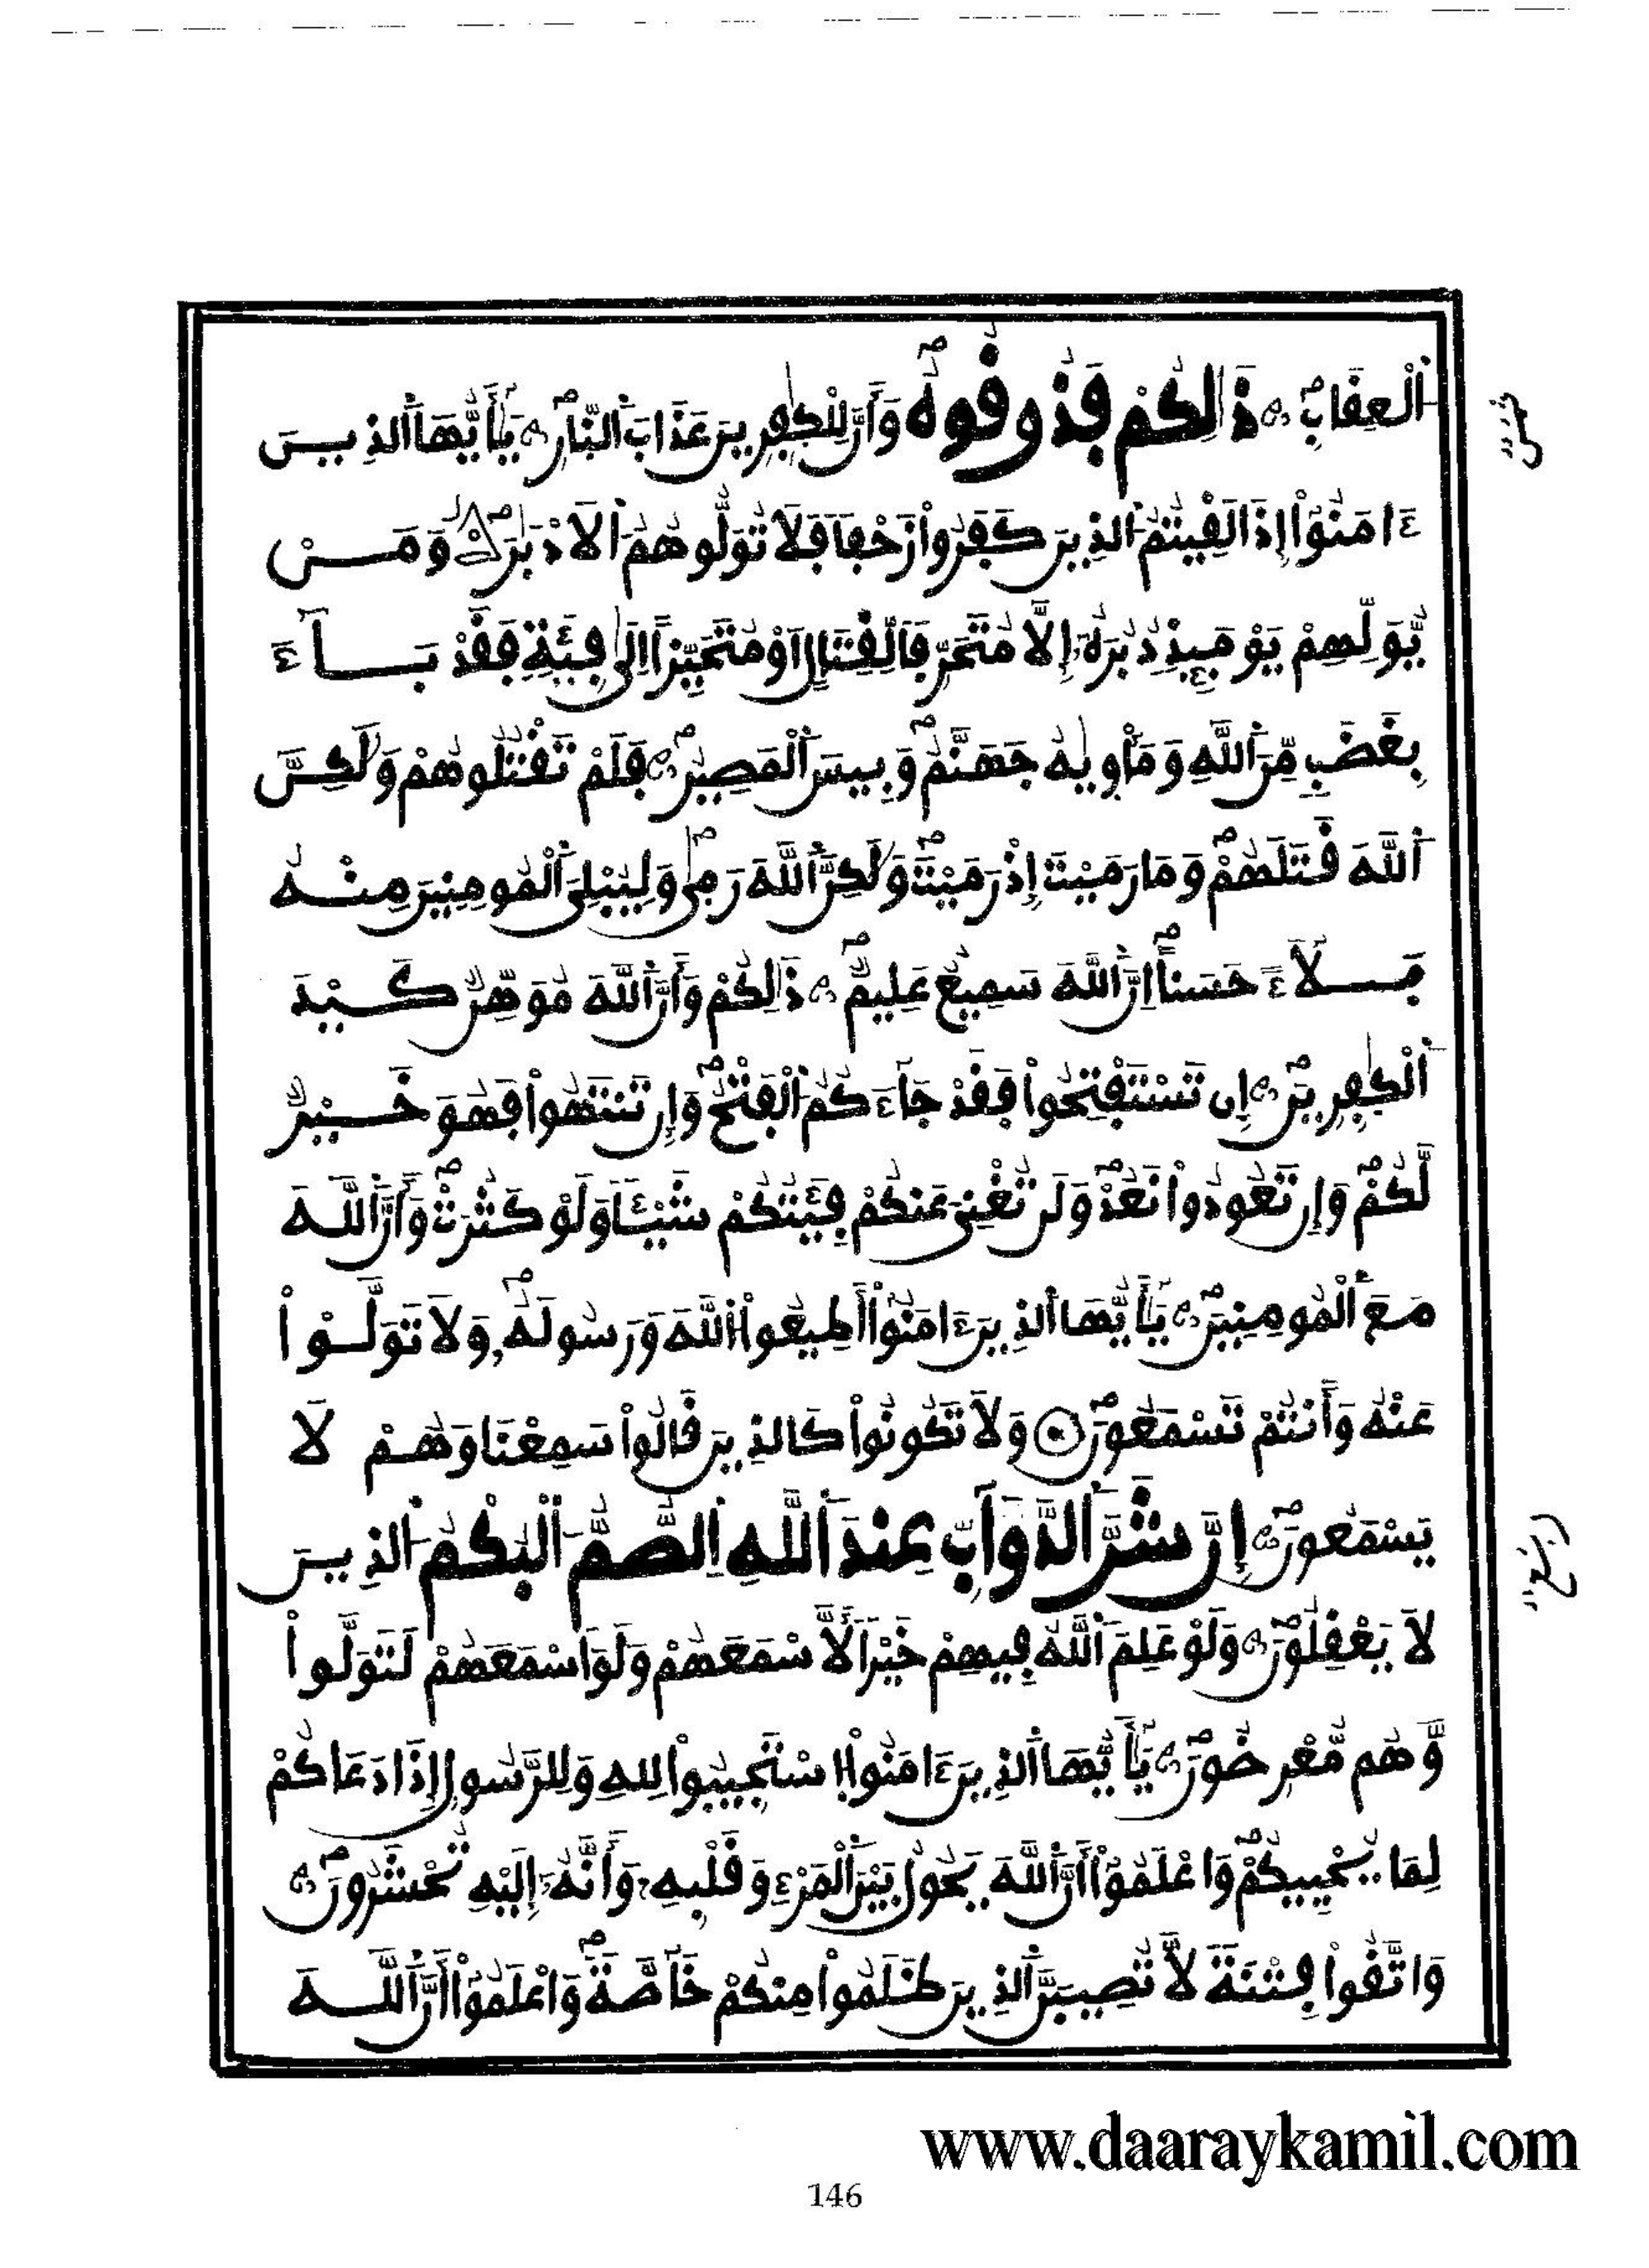 اَ۬لْعِقَابِ ذَٰلِكُمْ فَذُوقُوهُ وَأَنَّ لِلْكٰفِرِينَ عَذَابَ اَ۬لنّ۪ارِ يَٰٓأَيُّهَا اَ۬لذِينَ
ءَامَنُوٓاْ إِذَا لَقِيتُمُ اُ۬لذِينَ كَفَرُواْ زَحْفاٗ فَلَا تُوَلُّوهُمُ اُ۬لَادْبَٰرَ وَمَنْ
يُّوَلِّهِمْ يَوْمَئِذٖ دُبُرَهُۥٓ إِلَّا مُتَحَرِّفاٗ لِّقِتَالٍ اَوْ مُتَحَيِّزاً اِلَىٰ فِئَةٖ فَقَدْ بَآءَ
بِغَضَبٖ مِّنَ اَ۬للَّهِ وَمَأْوِيٰهُ جَهَنَّمُ وَبِيسَ اَ۬لْمَصِيرُ فَلَمْ تَقْتُلُوهُمْ وَلَٰكِنَّ
اَ۬للَّهَ قَتَلَهُمْ وَمَا رَمَيْتَ إِذْ رَمَيْتَ وَلَٰكِنَّ اَ۬للَّهَ رَمٰىۖ وَلِيُبْلِيَ اَ۬لْمُومِنِينَ مِنْهُ
بَلَآءً حَسَناً اِنَّ اَ۬للَّهَ سَمِيعٌ عَلِيمٞ ذَٰلِكُمْ وَأَنَّ اَ۬للَّهَ مُوَهِّنٞ كَيْدَ
اَ۬لْكٰفِرِينَ إِن تَسْتَفْتِحُواْ فَقَدْ جَآءَكُمُ اُ۬لْفَتْحُ وَإِن تَنتَهُواْ فَهُوَ خَيْرٞ
لَّكُمْ وَإِن تَعُودُواْ نَعُدْ وَلَن تُغْنِيَ عَنكُمْ فِئَتُكُمْ شَيْـٔاٗ وَلَوْ كَثُرَتْ وَأَنَّ اَ۬للَّهَ
مَعَ اَ۬لْمُومِنِينَ يَٰٓأَيُّهَا اَ۬لذِينَ ءَامَنُوٓاْ أَطِيعُواْ اُ۬للَّهَ وَرَسُولَهُۥ وَلَا تَوَلَّوْاْ
عَنْهُ وَأَنتُمْ تَسْمَعُونَ وَلَا تَكُونُواْ كَالذِينَ قَالُواْ سَمِعْنَا وَهُمْ لَا
يَسْمَعُونَ إِنَّ شَرَّ اَ۬لدَّوَآبِّ عِندَ اَ۬للَّهِ اِ۬لصُّمُّ اُ۬لْبُكْمُ اُ۬لذِينَ
لَا يَعْقِلُونَ وَلَوْ عَلِمَ اَ۬للَّهُ فِيهِمْ خَيْراٗ لَّأَسْمَعَهُمْ وَلَوَ اَسْمَعَهُمْ لَتَوَلَّواْ
وَّهُم مُّعْرِضُونَ يَٰٓأَيُّهَا اَ۬لذِينَ ءَامَنُواْ اُ۪سْتَجِيبُواْ لِلهِ وَلِلرَّسُولِ إِذَا دَعَاكُمْ
لِمَا يُحْيِيكُمْ وَاعْلَمُوٓاْ أَنَّ اَ۬للَّهَ يَحُولُ بَيْنَ اَ۬لْمَرْءِ وَقَلْبِهِۦ وَأَنَّهُۥٓ إِلَيْهِ تُحْشَرُونَ
وَاتَّقُواْ فِتْنَةٗ لَّا تُصِيبَنَّ اَ۬لذِينَ ظَلَمُواْ مِنكُمْ خَآصَّةٗ وَاعْلَمُوٓاْ أَنَّ اَ۬للَّهَ
www.daaraykamil.com
146